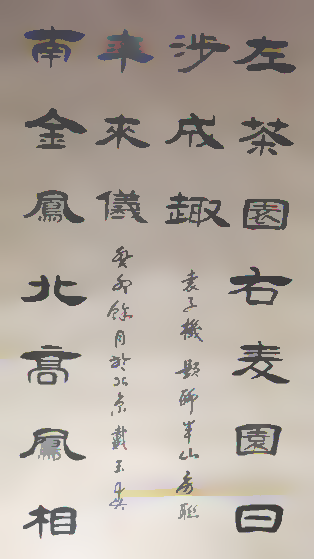 左茶園右麦園日
涉成趣
袁子機題聊半山房聯
南金鳳北高鳳相
率來儀
癸卯餘月於北京戴玉